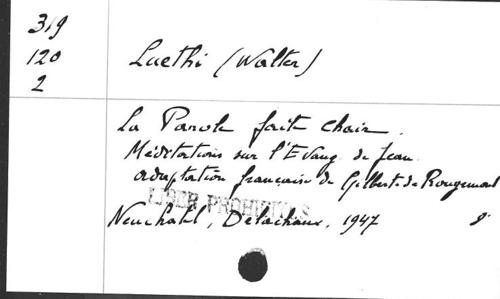 319
120
2
Luethi (Walter)
La Parole faite chair.
Méditations sur l'Evang. de Jean.
adaptation française de Gilberte de Rougemont
LIBER PROHIBITUS
Neuchatel, Delachaux, 1947 8°